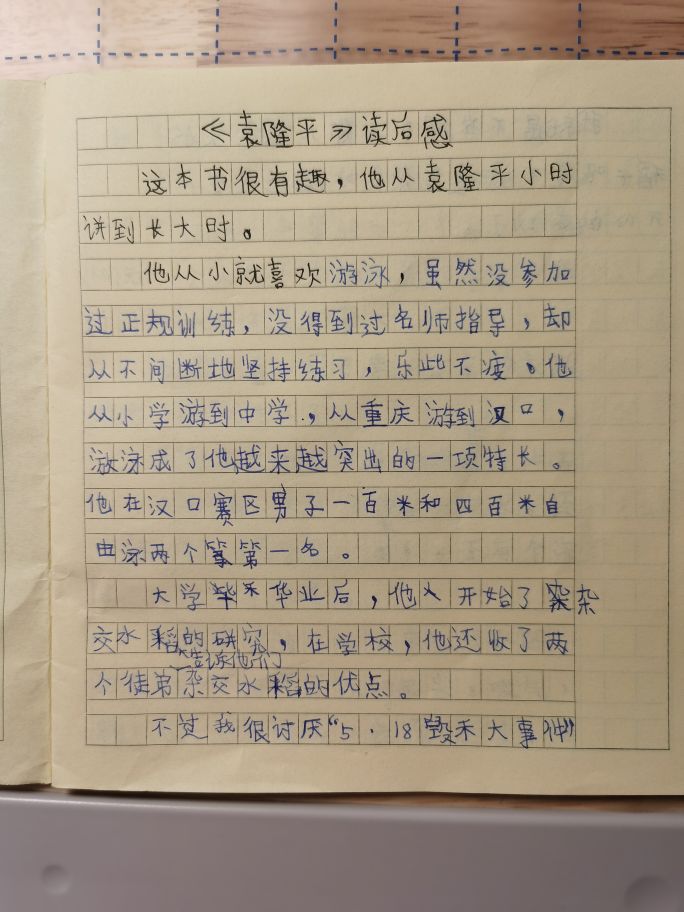 《袁隆平》读后感
这本书很有趣，他从袁隆平小时
讲到长大时。
他从小就喜欢游泳，虽然没参加
过正规训练，没得到过名师指导，却
从不间断地坚持练习，乐此不疲。他
从小学游到中学，从重庆游到汉口，
游泳成了他越来越突出的一项特长。
他在汉口赛区男子一百米和四百米自
由泳两个第一名。
大学毕业后，他开始了杂
交水稻的研究，在学校，他还收了两
告诉他们
个徒弟杂交水稻的优点。
不过我很讨厌“5·18毁禾大事件”